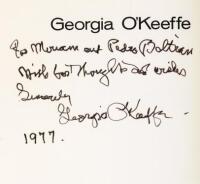 Georgia O'Keeffe
For Miriam and Pedro Beltran
With best thoughts and wishes
Sincerely
Georgia O'Keeffe
1977.